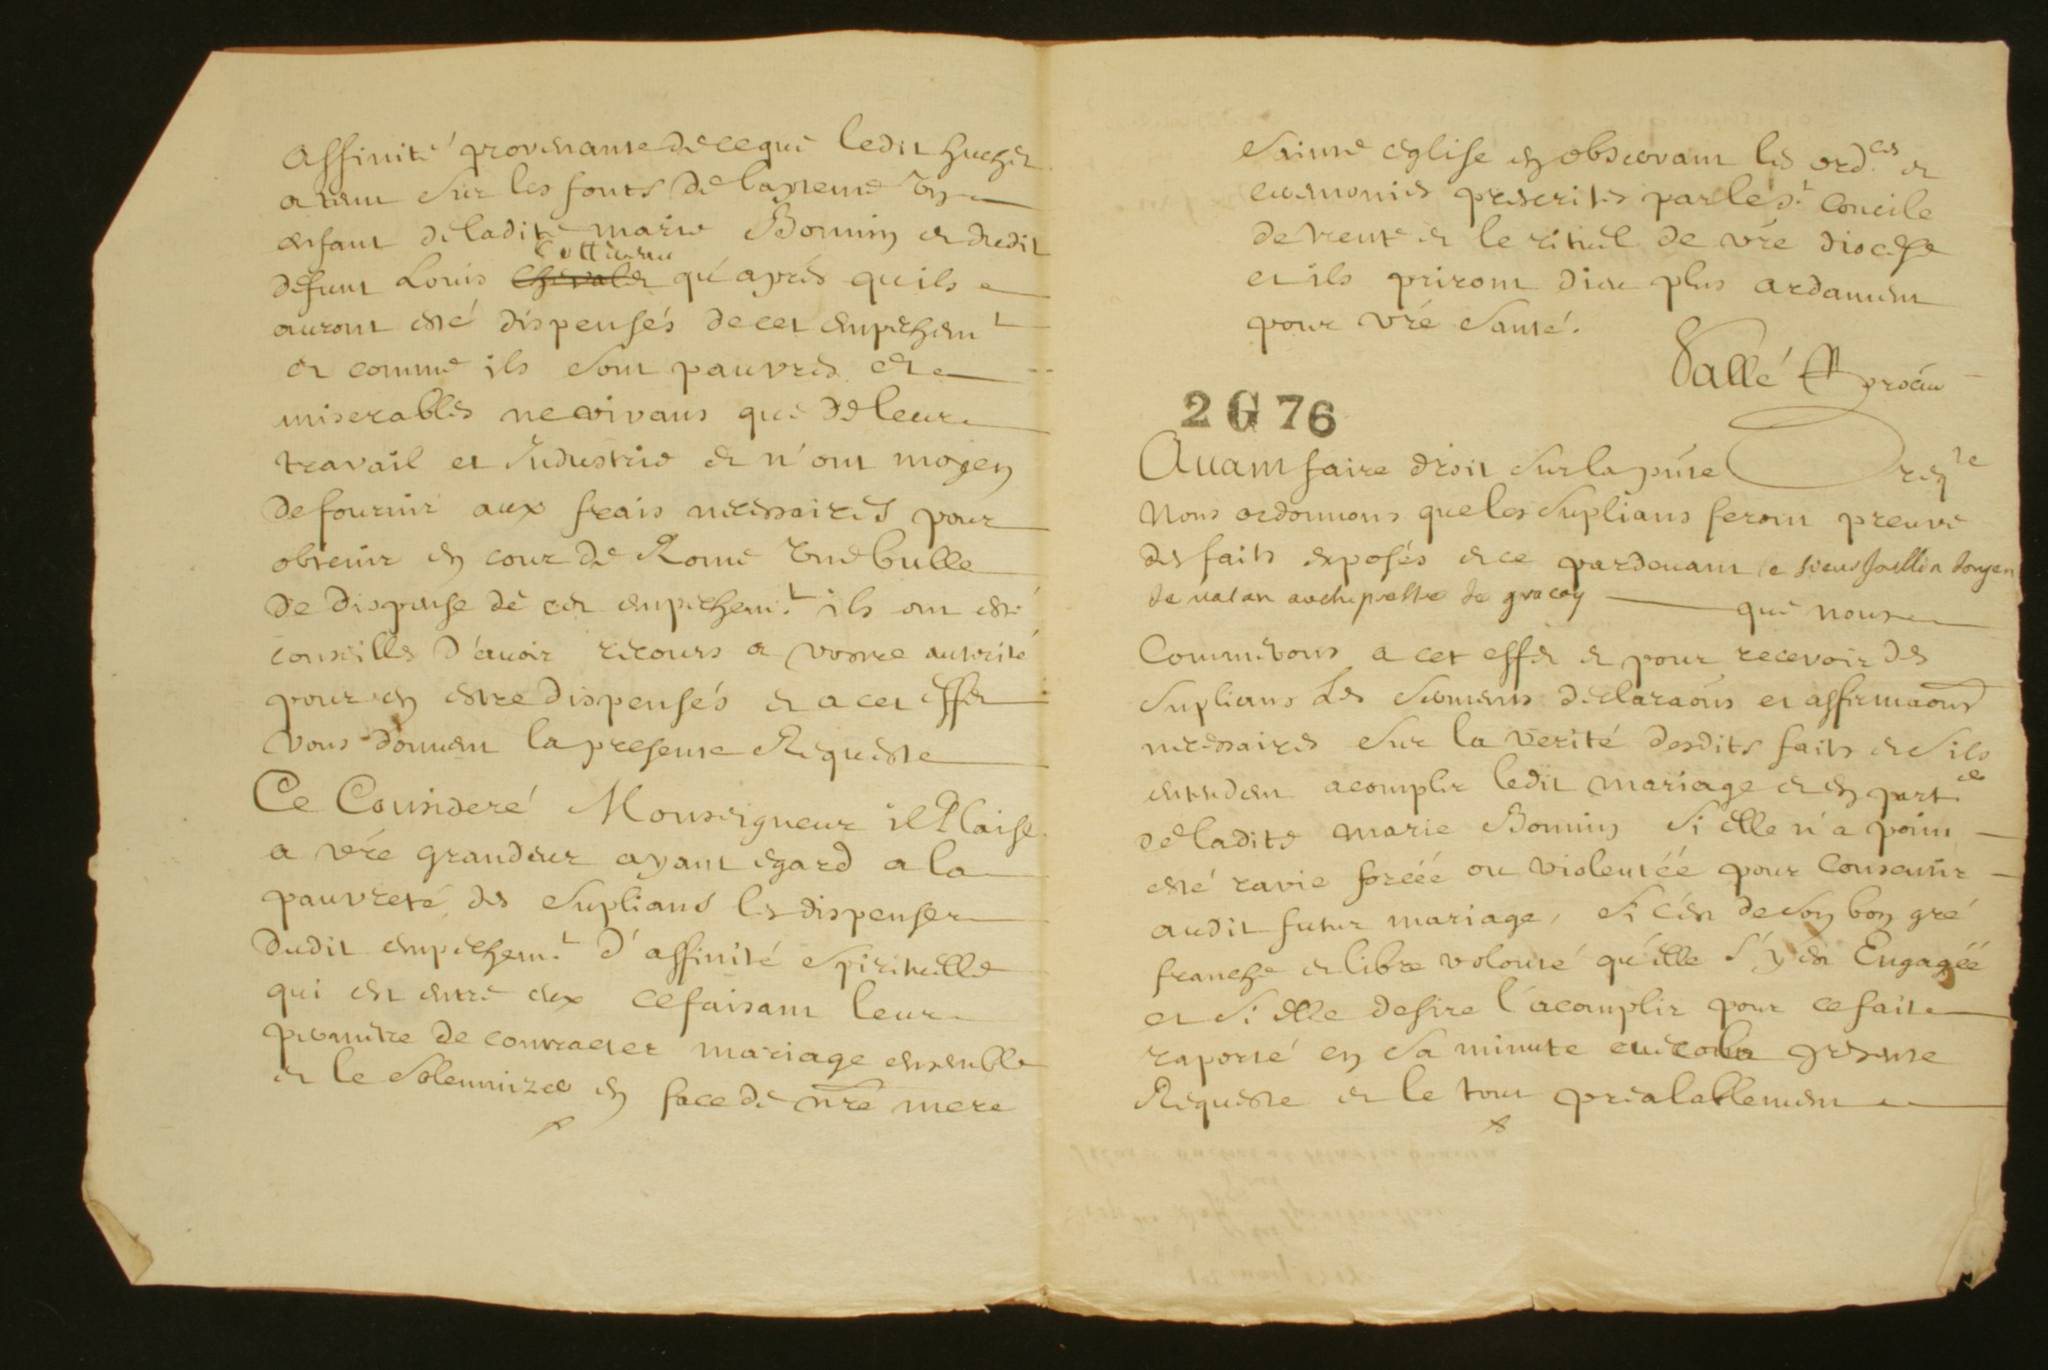 affinité provenante de ce que ledit huchet
a tenu sur les fonts de bapteme un
enfant de ladite marie Bonnin et dudit
Cottereau
defunt Louis Chevalier qu'aprés qu'ils
auront esté dispensés de cet empechemt
et comme ils sont pauvres et
miserables ne vivans que de leur
travail et industrie et n'ont moyen
de fournir aux frais necessaires pour
obtenir en cour de Rome une bulle
de dispense de cet empechemt ils ont esté
conseillés d'avoir recours a vostre autorité
pour en estre dispensés et a cet effet
vous donnent la presente Requeste
Ce Consideré Monseigneur il Plaise
a vre grandeur ayant egard a la
pauvreté des suplians les dispenser
dudit empechemt d'affinité spirituelle
qui est entre eux ce faisant leur
permettre de contracter mariage ensemble
et le solemnizer en face de nre mere
sainte eglise en observant les ordces et
ceremonies prescrites par le St Concile
de trente et le rituel de vre diocese
et ils priront dieu plus ardament
pour vre santé.
Vallé
2 G 76
Avant faire droit sur la pnte reqte
Nous ordonnons que les suplians feront preuve
des faits exposés et ce pardevant le sieur Joullin doyen
de vatan archiprestre de gracay que nous
Commetons a cet effet et pour recevoir des
suplians les sermens declaraons et affirmaons
necessaires sur la verité desdits faits et s'ils
entendent acomplir ledit mariage et en part.
de ladite marie Bonnin si elle n'a point
esté ravie forcéé ou violentéé pour consentir
audit futur mariage, si c'est de son bon gré
franche et libre volonté qu'elle s'y est Engagéé
et si elle desire l'acomplir pour ce fait
raporté en sa minute avec la presente
Requeste et le tout prealablement